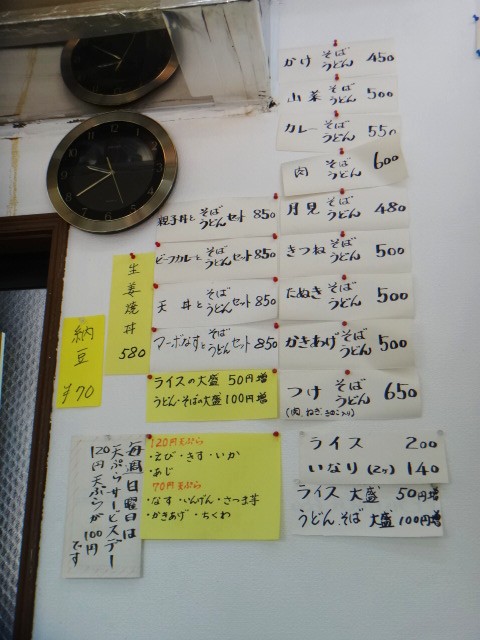 かけ そば うどん 450
山菜 そば うどん 500
カレー そば うどん 550
肉 そば うどん 600
月見 そば うどん 480
きつね そば うどん 500
たぬき そば うどん 500
かきあげ そば うどん 500
つけ そば うどん 650
(肉、ねぎ、きのこ入り)
ライス 200
いなり(2ヶ) 140
ライス 大盛 50円増
うどん、そば 大盛 100円増
親子丼と そば うどん セット 850
ビーフカレーと そば うどん セット 850
天丼と そば うどん セット 850
マーボなすと そば うどん セット 850
ライスの大盛 50円増
うどん・そばの大盛 100円増
120円天ぷら
・えび・きす・いか
・あじ
70円天ぷら
・なす・いんげん・さつま芋
・かきあげ・ちくわ
生姜焼丼 580
納豆 ¥70
毎週日曜日は
天ぷらサービスデー
120円天ぷらが100円
です